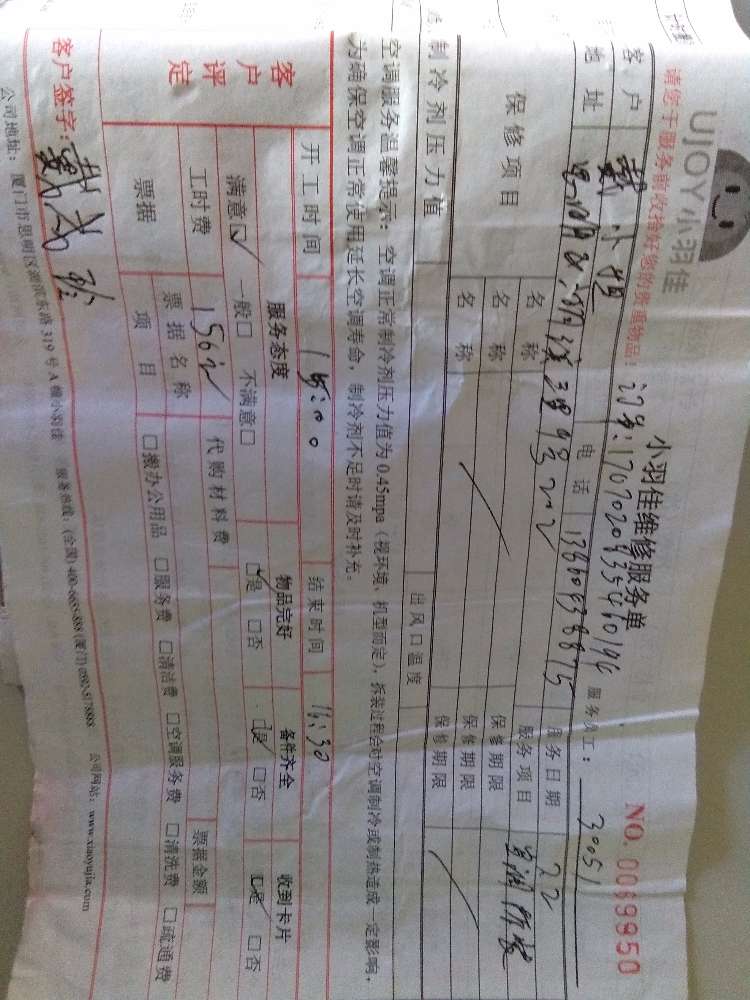 UJOY小羽佳
小羽佳维修服务单
NO. 0039950
请您于服务前收捡好您的贵重物品!
服务人工: 30051
客户 戴小姐 电话 13860938875 服务日期 22
地址 服务项目
保修项目 名称 保修期限
名称 保修期限
名称 保修期限
制冷剂压力值 出风口温度
空调服务温馨提示: 空调正常制冷剂压力值为 0.45mpa (视环境、机型而定), 拆装过程会对空调制冷或制热造成一定影响,
为确保空调正常使用延长空调寿命, 制冷剂不足时请及时补充。
开工时间 15:00 结束时间 16:30
客户评定
服务态度 物品完好 备件齐全 收到卡片
满意☑ 一般□ 不满意□ ☑是 □否 ☑是 □否 ☑是 □否
工时费 156元 代购材料费
票据 票据名称 票据金额
项目 □搬办公用品 □服务费 □清洁费 □空调服务费 □清洗费 □疏通费
客户签字:
公司地址: 厦门市思明区湖滨东路 319 号 A 幢小羽佳 服务热线: (全国) 400-6655-888 (厦门) 0592-5178888 公司网站: www.xiaoyujia.com